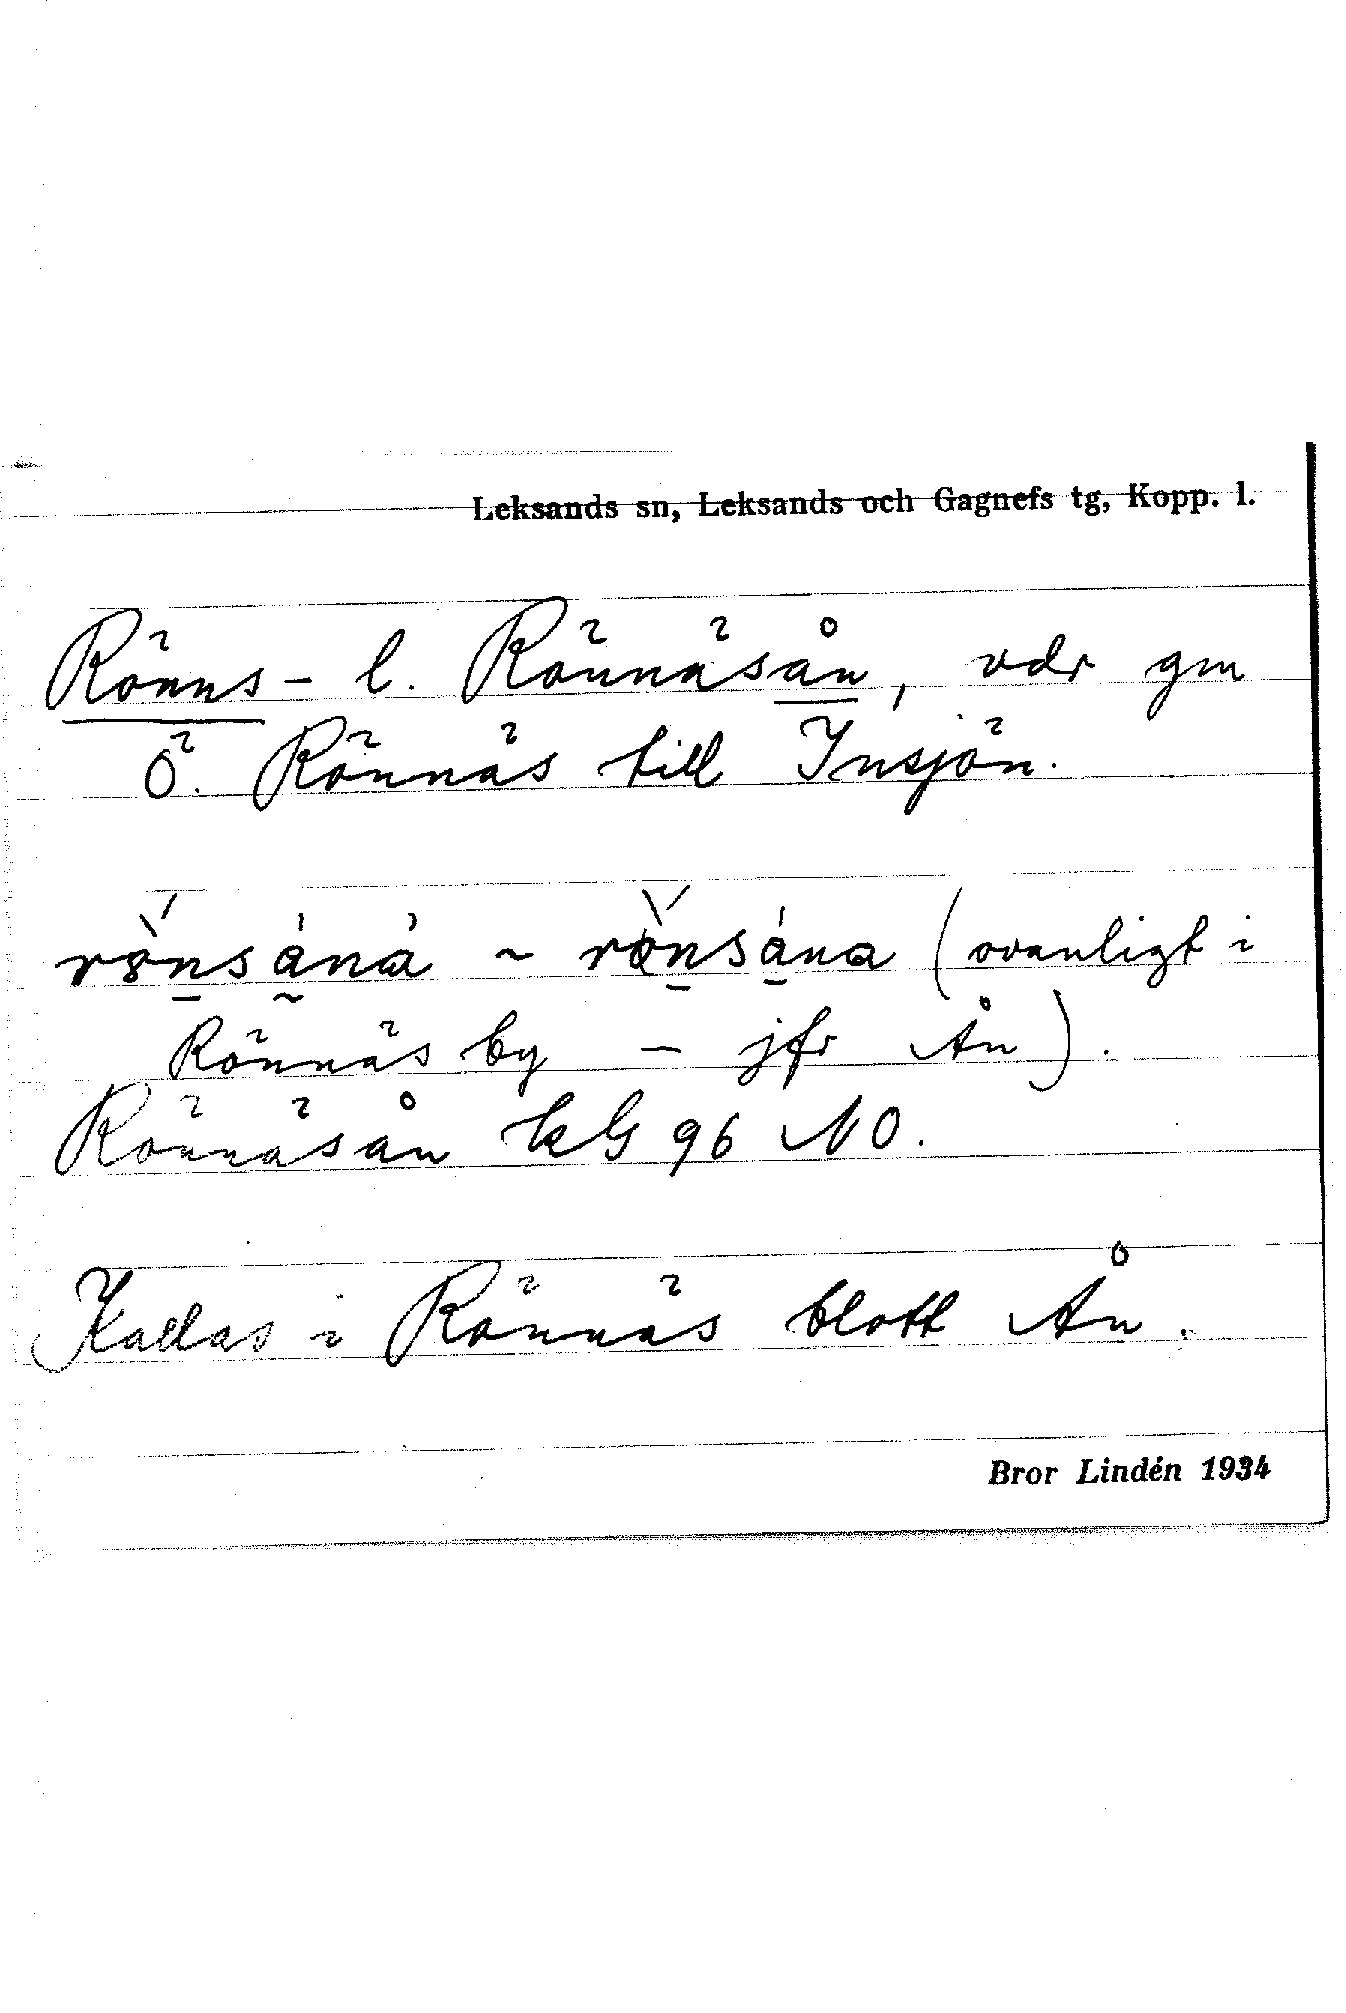 Leksands sn, Leksands och Gagnefs tg, Kopp. l.
Rönns- l. Rönnäsån, vdr gm
Ö. Rönnäs till Insjön.
rönsánà ~ rönsána (ovanligt i
Rönnäs by – jfr Ån).
Rönnäsån kG 96 NO.
Kallas i Rönnäs blott Ån.
Bror Lindén 1934